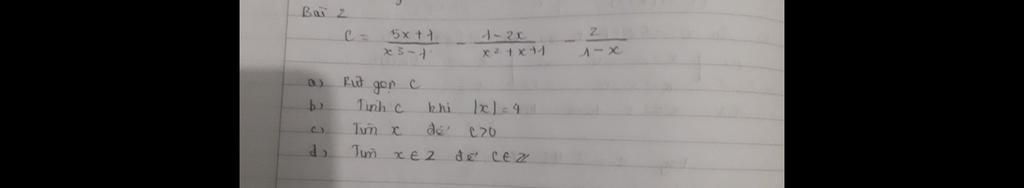 Bài 2
C = \frac{5x+1}{x^3-1} - \frac{1-2x}{x^2+x+1} - \frac{2}{1-x}
a) Rút gọn C
b) Tính C khi |x|=4
c) Tìm x để C>0
d) Tìm x∈Z để C∈Z